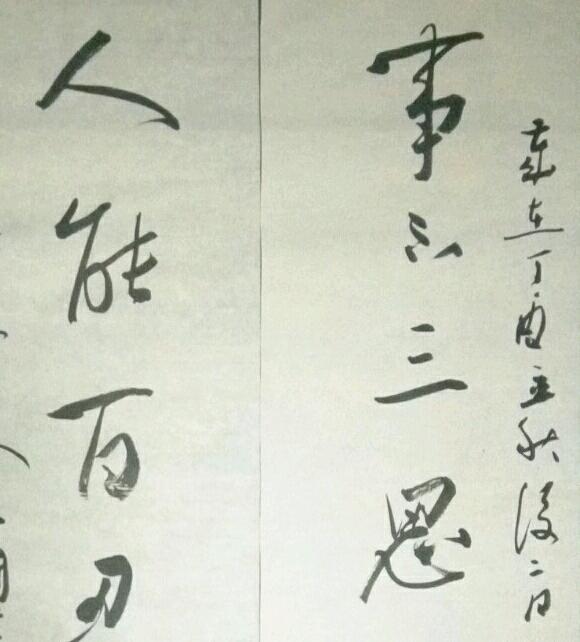 歲在丁酉立秋後二日
事不三思
人能百忍